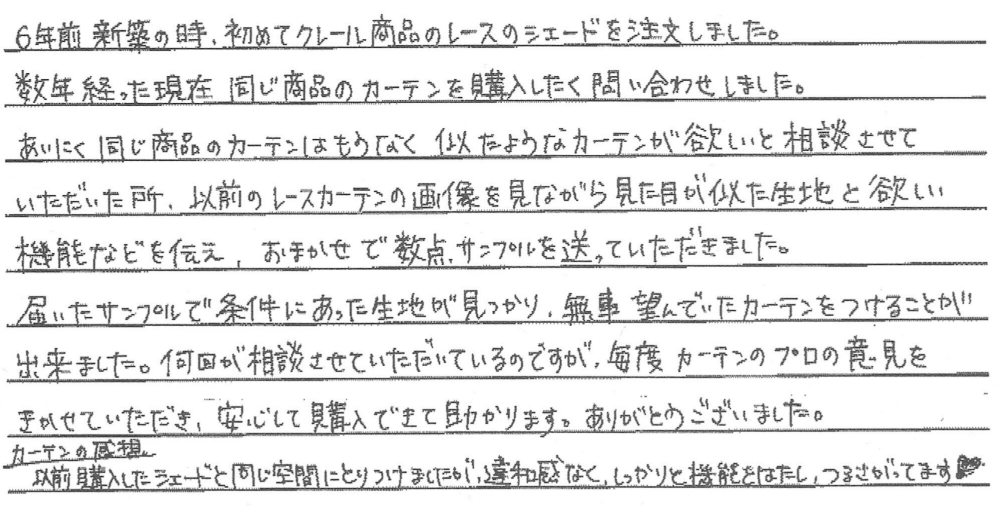 6年前 新築の時、初めてクレール商品のレースのシェードを注文しました。
数年経った現在 同じ商品のカーテンを購入したく問い合わせしました。
あいにく同じ商品のカーテンはもうなく 似たようなカーテンが欲しいと相談させて
いただいた所、以前のレースカーテンの画像を見ながら見た目が似た生地と欲しい
機能などを伝え、おまかせで数点サンプルを送っていただきました。
届いたサンプルで条件にあった生地が見つかり、無事望んでいたカーテンをつけることが
出来ました。何回か相談させていただいているのですが、毎度カーテンのプロの意見を
きかせていただき、安心して購入できて助かります。ありがとうございました。
カーテンの感想
以前購入したシェードと同じ空間にとりつけましたが、違和感なく、しっかりと機能をはたし、つるさがってます